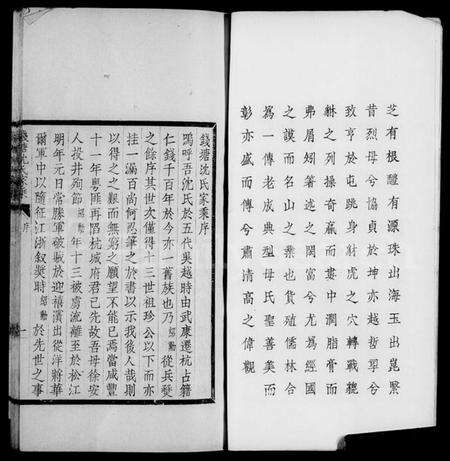 芝有根醴有源珠出海玉出崑繄
昔烈母兮協貞於坤亦越哲㓜兮
致亨於屯跳身豺虎之穴轉戰貔
貅之列操奇贏而中潤脂膏而
弗屑矧著述之閎富兮尤爲經國
之謨而名山之業也貨殖儒林合
爲一傳老成典型母氏聖善美而
彰亦盛而傳兮肅清高之偉觀
錢塘沈氏家乘序
嗚呼吾沈氏於五代吳越時由武康遷杭占籍
仁錢千百年於今亦一舊族也乃紹勳從兵燹
之餘序其世次僅得十三世祖珍公以下而亦
挂一漏百尚何忍筆之於書以示我後人哉則
以得之之艱而無窮之願望不能已焉當咸豐
十一年粵匪再陷杭城府君已先故吾母徐安
人投井殉節紹勳年十三被虜流離至於松江
明年元日常勝軍破賊於迎禧濱出從洋將華
爾軍中以隨征江浙叙奬時紹勳於先世之事
錢塘沈氏家乘 序 一